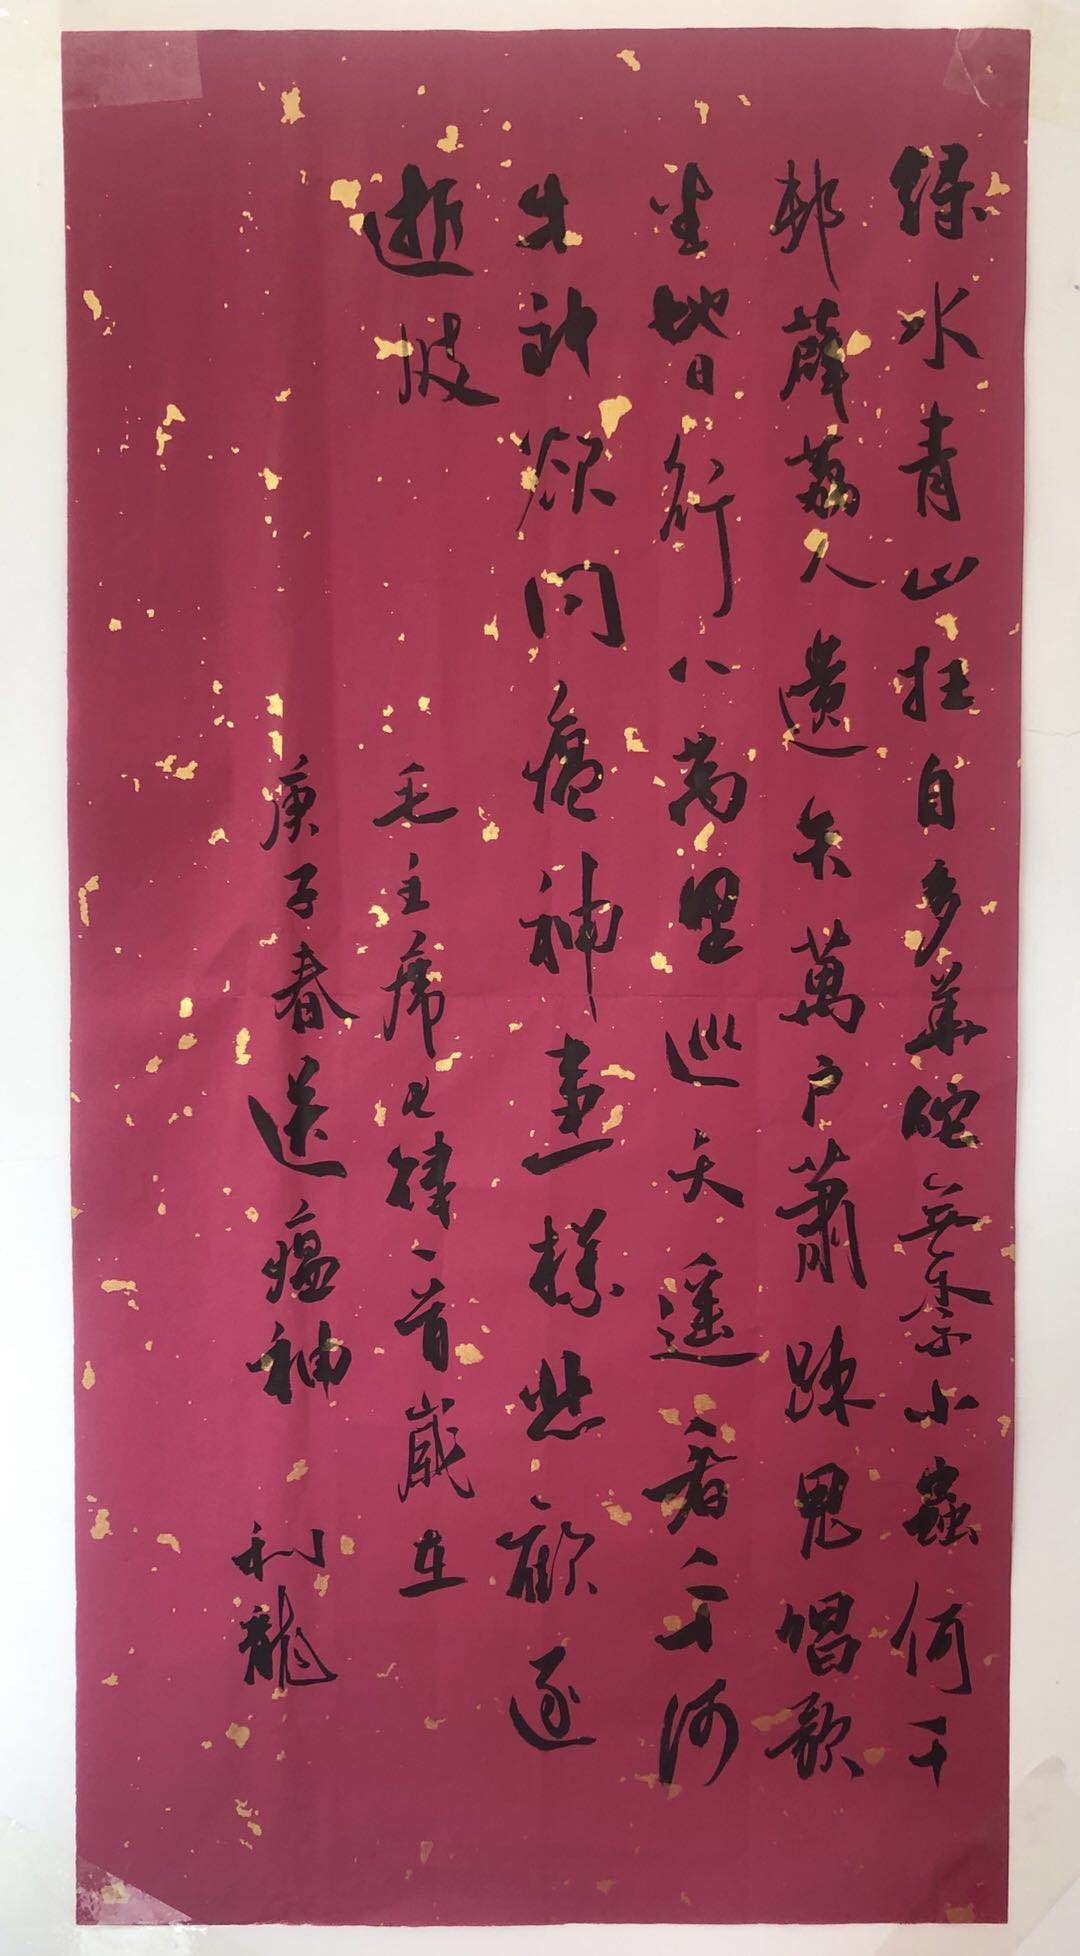 绿水青山枉自多華佗無奈小蟲何千
邨薜荔人遺矢萬户蕭踈鬼唱歌
坐地日行八萬里巡天遥看一千河
牛郎欲问瘟神事一樣悲歡逐
逝波
毛主席七律一首歲在
庚子春送瘟神 利龍